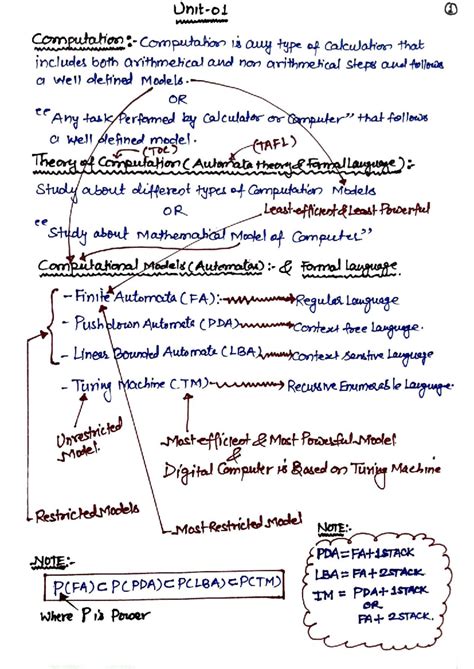 Unit-01
1
Computation:- Computation is any type of Calculation that
includes both arithmetical and non arithmetical steps and follows
a well defined Models.
OR
"Any task Performed by Calculator or Computer" that follows
a well defined model.
(TOC)
(TAFL)
Theory of Computation (Automata theory & Formal Language):-
Study about different types of Computation Models
OR
Least efficient & Least Powerful
"Study about Mathematical Model of Computer"
Computational Models (Automatas):- & Formal Language
- Finite Automata (FA):- Regular Language
- Pushdown Automate (PDA) Context free Language.
- Linear Bounded Automate (LBA) Context Sensitive Language
- Turing Machine (TM) Recursive Enumerable Language.
Unrestricted
Model.
Most efficient & Most Powerful Model
&
Digital Computer is Based on Turing Machine
Restricted Models
Most Restricted Model
NOTE:-
PDA = FA + 1 STACK
LBA = FA + 2 STACK
TM = PDA + 1 STACK
OR
FA + 2 STACK.
NOTE:-
P(FA) ⊂ P(PDA) ⊂ P(LBA) ⊂ P(TM)
Where P is Power